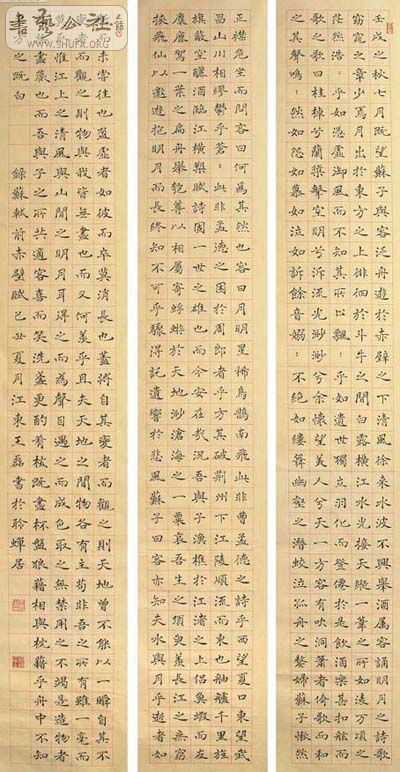 壬戌之秋七月既望蘇子與客泛舟遊於赤壁之下清風徐來水波不興舉酒屬客誦明月之詩歌
窈窕之章少焉月出於東方之上徘徊於斗牛之間白露橫江水光接天縱一葦之所如凌萬頃之
茫然浩〻乎如憑虛御風而不知其所以飄〻乎如遺世獨立羽化而登僊於是飲酒樂甚扣舷而
歌之歌曰桂棹兮蘭槳擊空明兮泝流光渺渺兮余懷望美人兮天一方客有吹洞簫者倚歌而和
之其聲嗚〻然如怨如慕如泣如訴餘音嫋〻不絕如縷舞幽壑之潛蛟泣孤舟之嫠婦蘇子愀然
正襟危坐而問客曰何為其然也客曰月明星稀烏鵲南飛此非曹孟德之詩乎西望夏口東望武
昌山川相繆鬱乎蒼〻此非孟德之困於周郎者乎方其破荊州下江陵順流而東也舳艫千里旌
旗蔽空釃酒臨江橫槊賦詩固一世之雄也而今安在哉況吾與子漁樵於江渚之上侶魚蝦而友
麋鹿駕一葉之扁舟舉匏尊以相屬寄蜉蝣於天地渺滄海之一粟哀吾生之須臾羨長江之無窮
挾飛仙以遨遊抱明月而長終知不可乎驟得託遺響於悲風蘇子曰客亦知夫水與月乎逝者如
斯而未嘗往也盈虛者如彼而卒莫消長也蓋將自其變者而觀之則天地曾不能以一瞬自其不
變者而觀之則物與我皆無盡也而又何羨乎且夫天地之間物各有主苟非吾之所有雖一毫而
莫取惟江上之清風與山間之明月耳得之而為聲目遇之而成色取之無禁用之不竭是造物者
之無盡藏也而吾與子之所共適客喜而笑洗盞更酌肴核既盡杯盤狼藉相與枕藉乎舟中不知
東方之既白 錄蘇軾前赤壁賦己丑夏月江東王磊書於聆蟬居
書藝公社
WWW.SHUFA.ORG